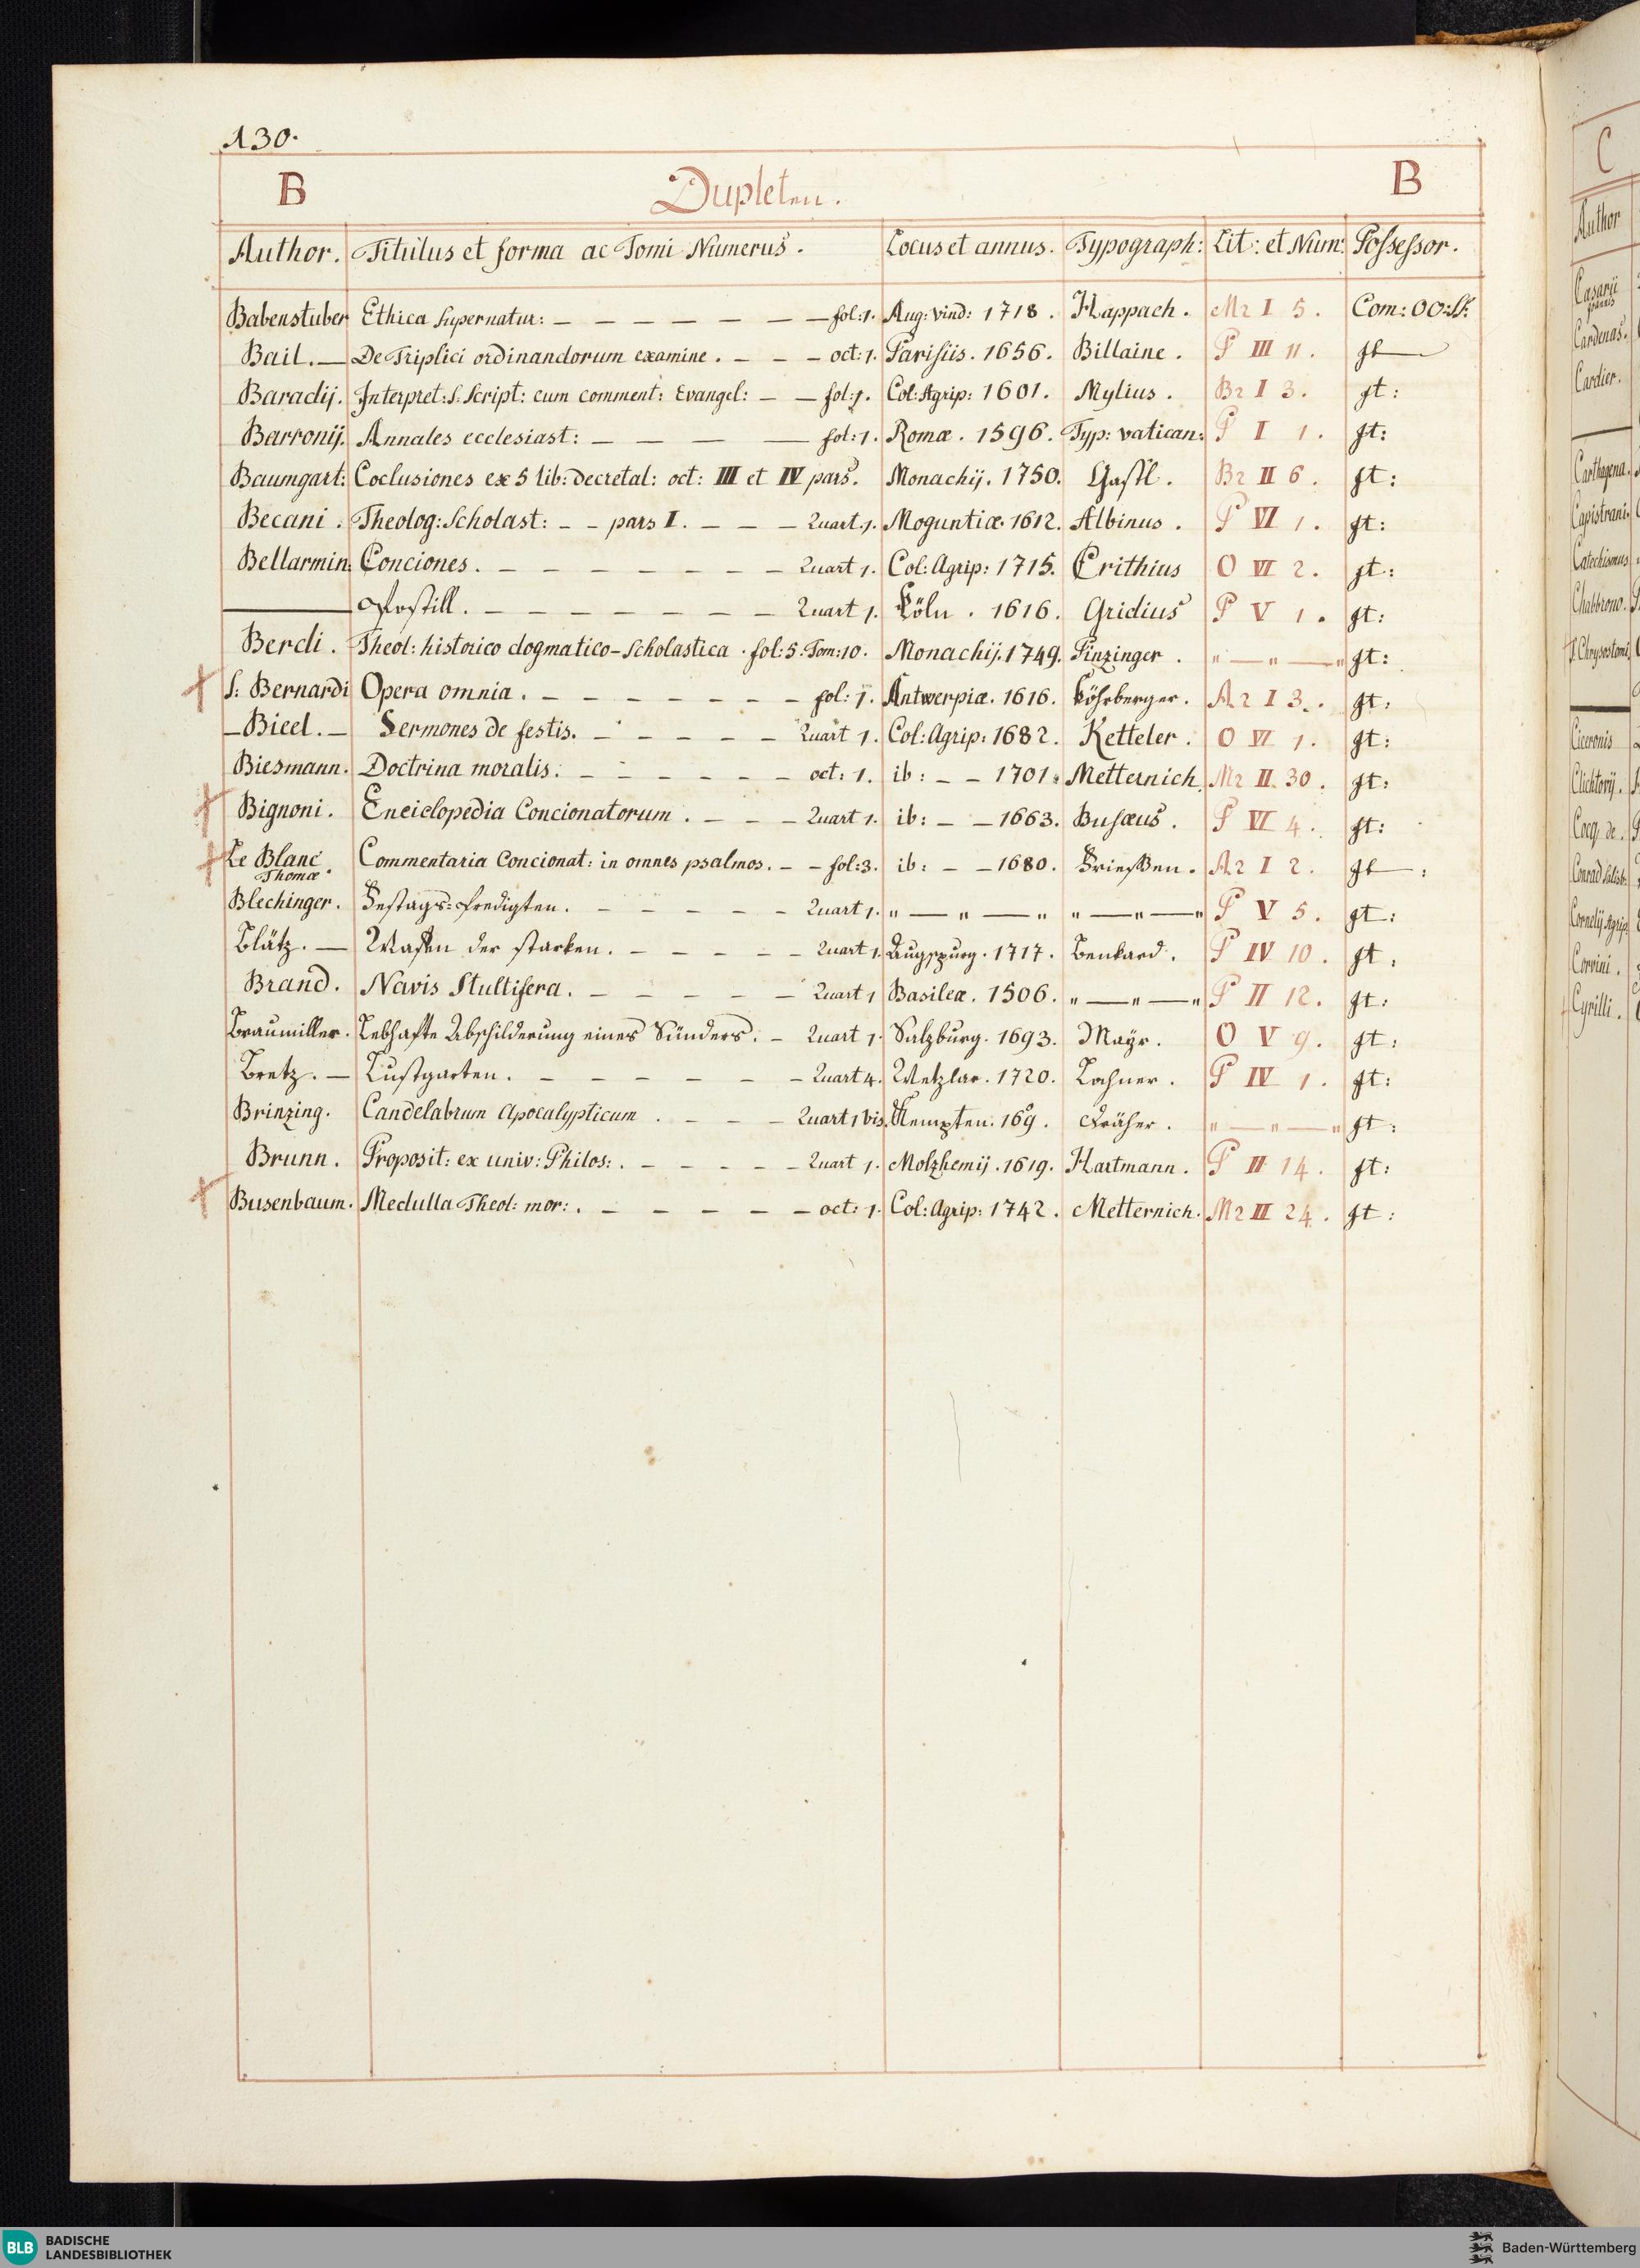 130.
B Dupleten. B
Author. Titulus et forma ac Tomi Numerus. Locus et annus. Typograph: Lit: et Num: Possessor.
Babenstuber Ethica supernatur: — — — — — — — fol: 1. Aug: vind: 1718. Happach. M2 I 5. Com: OO: SS.
Bail. — De Triplici ordinandorum examine. — — — oct: 1. Parisiis. 1656. Billaine. P III 11.
Baradij. Interpret: S. Script: cum comment: Evangel: — — fol: 1. Col: Agrip: 1601. Mylius. B2 I 3. it:
Barronij. Annales ecclesiast: — — — — fol: 1. Romæ. 1596. Typ: vatican: P I 1. it:
Baumgart: Coclusiones ex 5 lib: decretal: oct: III et IV pars. Monachij. 1750. Gastl. B2 II 6. it:
Becani. Theolog: Scholast: — — pars I. — — — Quart. 1. Moguntiæ. 1612. Albinus. P VI 1. it:
Bellarmin: Conciones. — — — — — — — — Quart 1. Col: Agrip: 1715. Erithius O VI 2. it:
— Postill. — — — — — — — — Quart 1. Cöln. 1616. Gridius P V 1. it:
Berdi. Theol: historico dogmatico-Scholastica. fol: 5. Tom: 10. Monachij. 1749. Finzinger. " — " — " it:
S: Bernardi Opera omnia. — — — — — — — fol: 1. Antwerpiæ. 1616. A2 I 3. it:
— Bieel. — Sermones de festis. — — — — — Quart 1. Col: Agrip: 1682. Ketteler. O VI 1. it:
Biesmann. Doctrina moralis. — — — — — — oct: 1. ib: — — 1701. Metternich. M2 II 30. it:
Bignoni. Enciclopedia Concionatorum. — — — Quart 1. ib: — — 1663. Busæus. P VI 4. it:
Le Blanc Commentaria Concionat: in omnes psalmos. — — fol: 3. ib: — — 1680. Frießen. A2 I 2.
Thomæ.
Blechinger. Festags-Predigten. — — — — — Quart 1. " — " — " " — " — " P V 5. it:
Blätz. — Wafen der starken. — — — — — Quart 1. Augspurg. 1717. Benkard. P IV 10. it.
Brand. Navis Stultifera. — — — — — — Quart 1 Basileæ. 1506. " — " — " P II 12. it:
Braumiller. Lebhafte Abschilderung eines Sünders. — Quart 1. Salzburg. 1693. Mayr. O V 9. it:
Bretz. — Lustgarten. — — — — — — Quart 4. Wetzlar. 1720. Lochner. P IV 1. it:
Brinzing. Candelabrum Apocalypticum. — — — Quart 1 bis. Kempten. Kräher. " — " — " it:
Brunn. Proposit: ex univ: Philos: . — — — — — Quart 1. Molzhemij. 1619. Hartmann. P II 14. it:
Busenbaum. Medulla Theol: mor: . — — — — — oct: 1. Col: Agrip: 1742. Metternich. M2 II 24. it:
C
Author
Cæsarij
Cardenas.
Cardier.
Carthagena.
Capistrani.
Catechismus
Chabbrono.
S. Chrysostomi
Ciceronis
Clichtovij.
Cocq. de.
Cornelij Agrip
Corvini.
Cyrilli.
BLB BADISCHE
LANDESBIBLIOTHEK
Baden-Württemberg